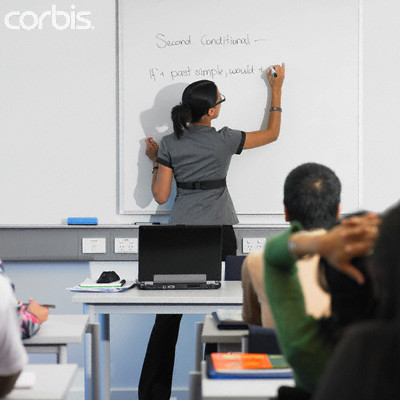 corbis.
Second Conditional –
If + past simple, would +